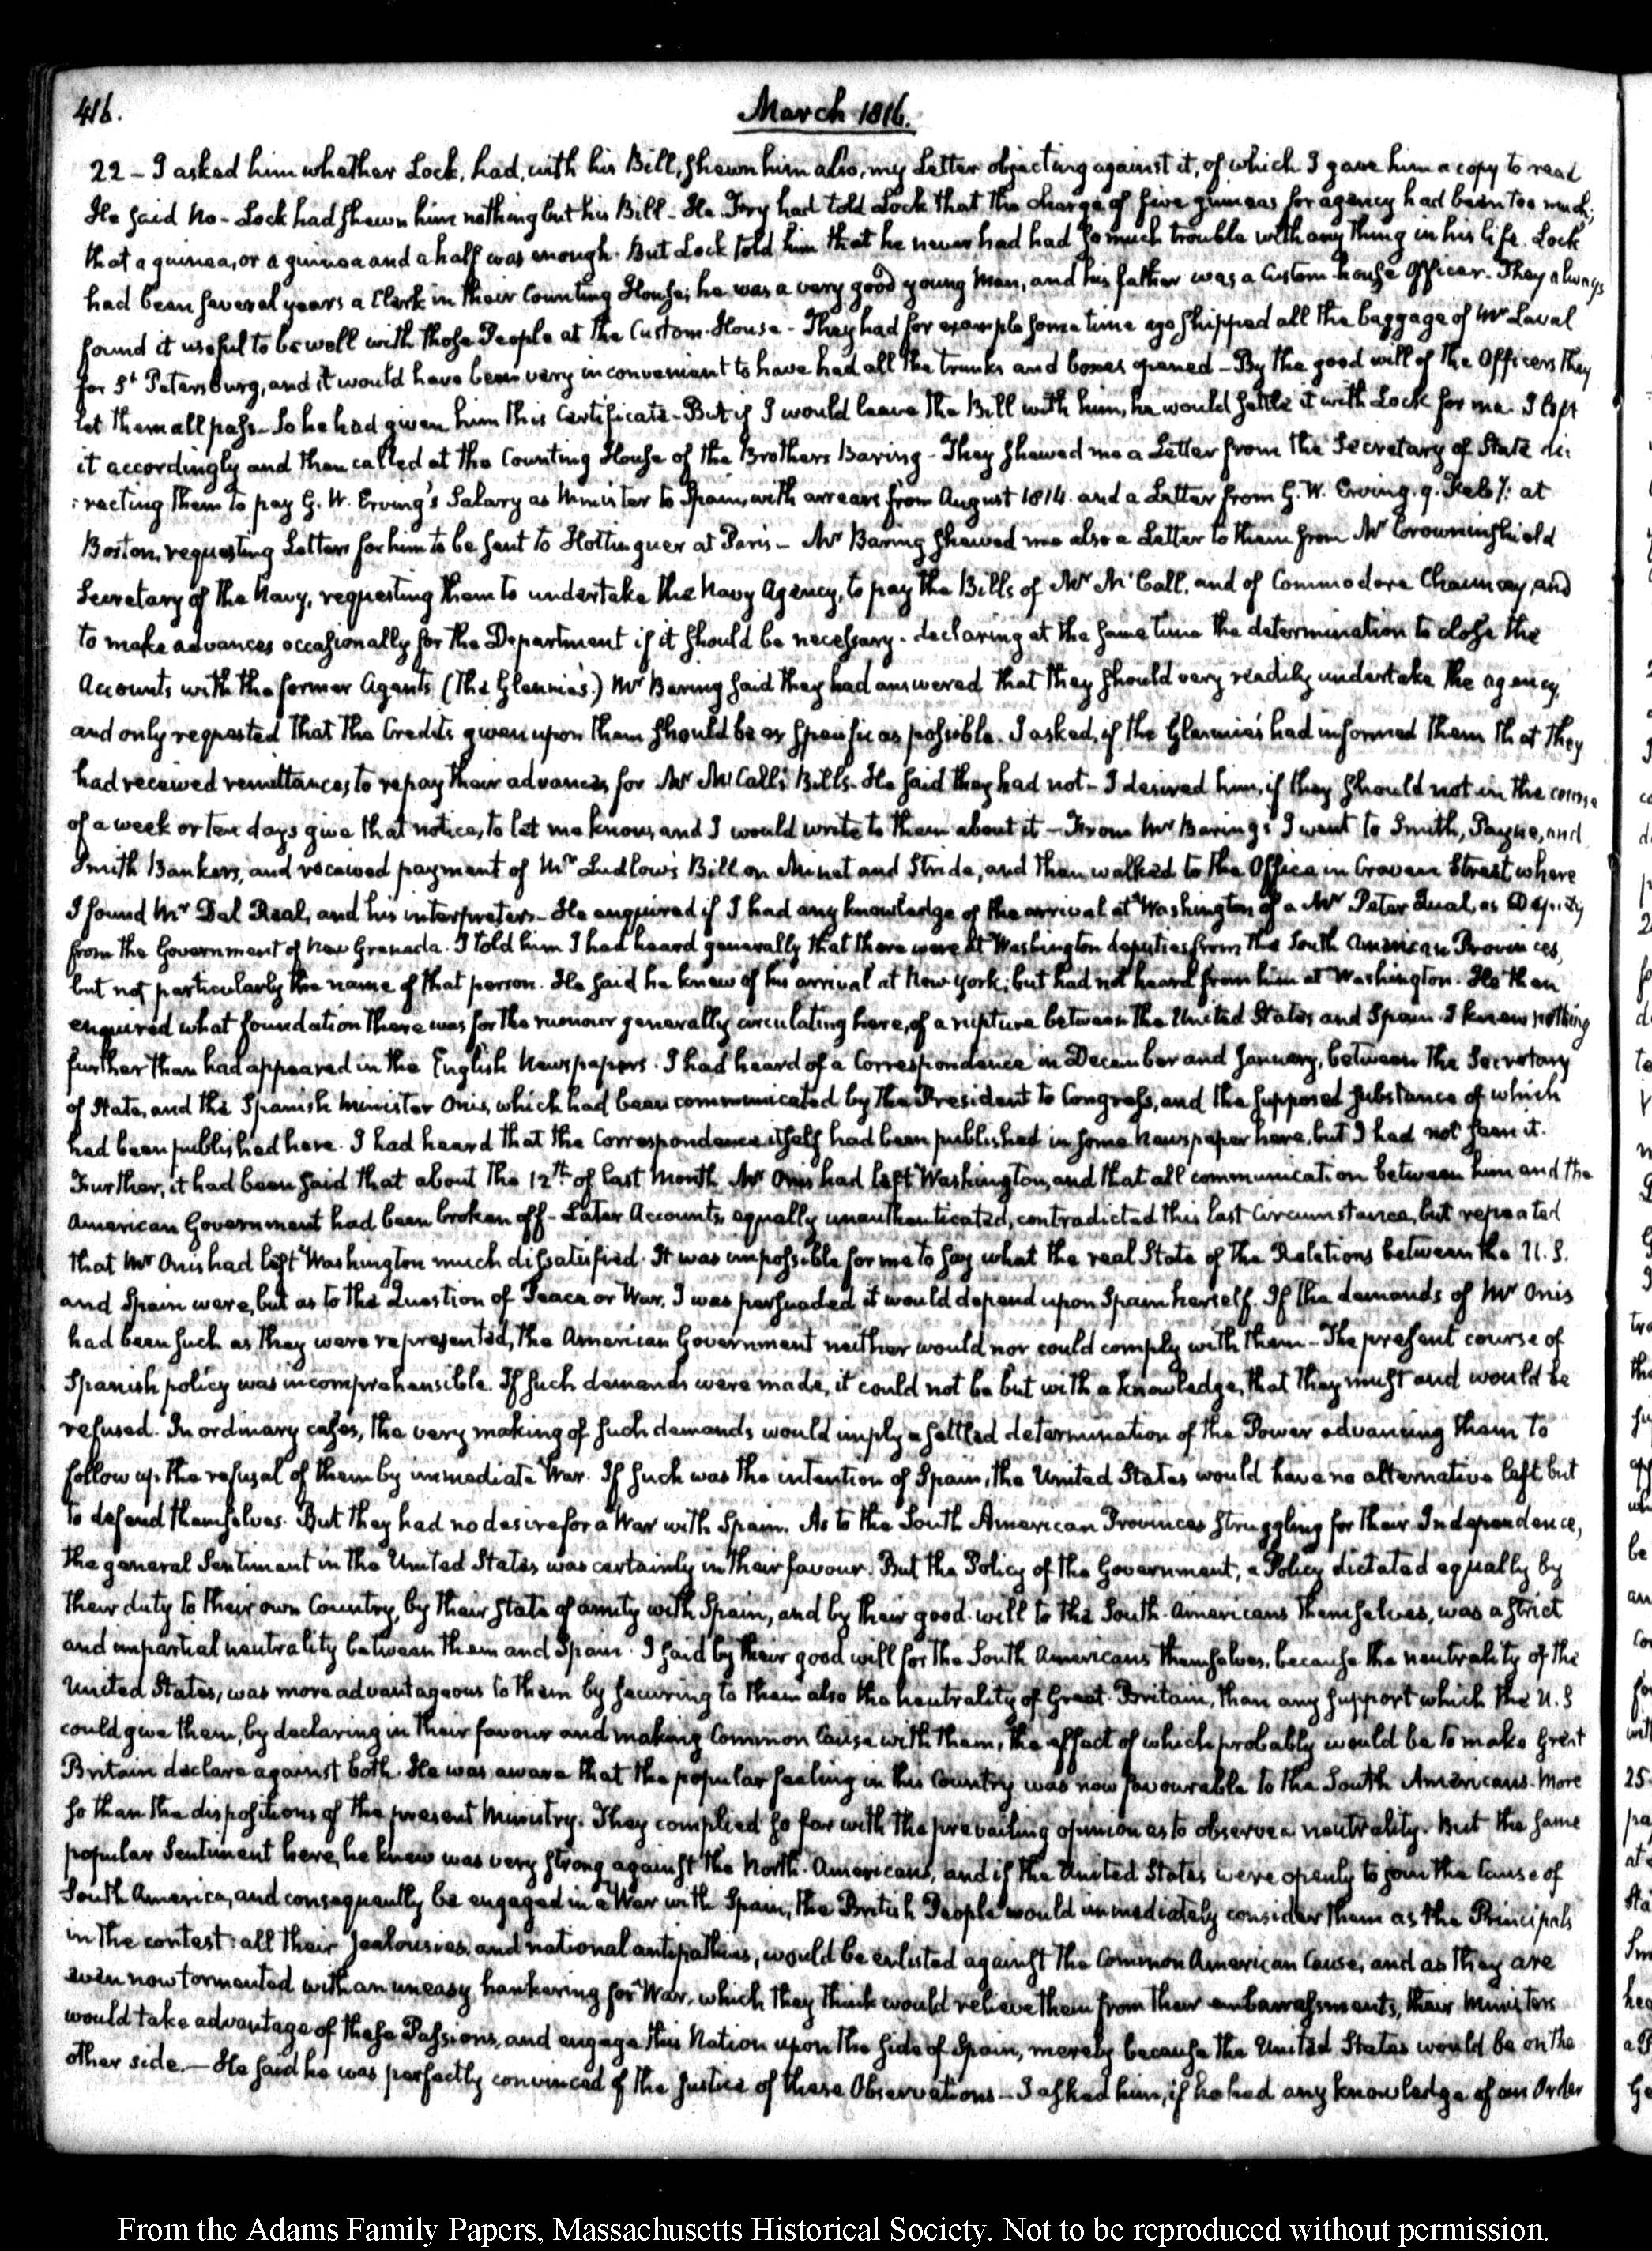 416.
March 1816.
22 – I asked him whether Lock, had, with his Bill, shewn him also, my Letter objecting against it, of which I gave him a copy to read
He said No – Lock had shewn him nothing but his Bill – He Fry had told Lock that the charge of five guineas for agency had been too much;
that a guinea, or a guinea and a half was enough. But Lock told him that he never had had so much trouble with any thing in his life. Lock
had been several years a Clerk in their Counting House; he was a very good young man, and his father was a Custom-house Officer. They always
found it useful to be well with those People at the Custom-House – They had for example some time ago shipped all the baggage of Mr Laval
for St Petersburg, and it would have been very inconvenient to have had all the trunks and boxes opened – By the good will of the Officers they
let them all pass – So he had given him this Certificate – But if I would leave the Bill with him, he would settle it with Lock for me. I left
it accordingly and then called at the Counting House of the Brothers Baring – They shewed me a Letter from the Secretary of State di:
:recting them to pay G. W. Erving's Salary as Minister to Spain, with arrears from August 1814. and a Letter from G. W. Erving. 9. Feby: at
Boston, requesting Letters for him to be sent to Hottinguer at Paris – Mr Baring shewed me also a Letter to them from Mr Crowninshield
Secretary of the Navy, requesting them to undertake the Navy Agency, to pay the Bills of Mr McCall, and of Commodore Chauncey, and
to make advances occasionally for the Department if it should be necessary – declaring at the same time the determination to close the
Accounts with the former Agents (The Glennie's.) Mr Baring said they had answered that they should very readily undertake the agency,
and only requested that the Credits given upon them should be as specific as possible. I asked, if the Glennie's had informed them that they
had received remittances, to repay their advances for Mr McCall's Bills – He said they had not – I desired him, if they should not in the course
of a week or ten days give that notice, to let me know, and I would write to them about it – From Mr Baring's I went to Smith, Payne, and
Smith Bankers, and received payment of Mr Ludlow's Bill on Minet and Stride, and then walked to the Office in Craven Street where
I found Mr Del Real, and his interpreter. He enquired if I had any knowledge of the arrival at Washington of a Mr Peter Gual, as Deputy
from the Government of New Granada. I told him I had heard generally that there were at Washington deputies from the South American Provinces,
but not particularly the name of that person. He said he knew of his arrival at New-York; but had not heard from him at Washington. He then
enquired what foundation there was for the rumour generally circulating here, of a rupture between the United States and Spain. I knew nothing
further than had appeared in the English Newspapers. I had heard of a Correspondence in December and January, between the Secretary
of State, and the Spanish Minister Onis, which had been communicated by the President to Congress, and the supposed substance of which
had been published here. I had heard that the Correspondence itself had been published in some Newspaper here, but I had not seen it.
Further, it had been said that about the 12th of last Month Mr Onis had left Washington, and that all communication between him and the
American Government had been broken off – Later Accounts, equally unauthenticated, contradicted this last Circumstance, but repeated
that Mr Onis had left Washington much dissatisfied. It was impossible for me to say what the real State of the Relations between the U.S.
and Spain were, but as to the Question of Peace or War, I was persuaded it would depend upon Spain herself. If the demands of Mr Onis
had been such as they were represented, the American Government neither would nor could comply with them – The present course of
Spanish policy was incomprehensible. If such demands were made, it could not be but with a knowledge, that they must and would be
refused. In ordinary cases, the very making of such demands would imply a settled determination of the Power advancing them to
follow up the refusal of them by immediate War. If such was the intention of Spain, the United States would have no alternative left but
to defend themselves. But they had no desire for a War with Spain. As to the South American Provinces struggling for their Independence,
the general Sentiment in the United States was certainly in their favour. But the Policy of the Government, a Policy dictated equally by
their duty to their own Country, by their state of amity with Spain, and by their good-will to the South-Americans themselves, was a strict
and impartial neutrality between them and Spain. I said by their good will for the South Americans themselves, because the neutrality of the
United States, was more advantageous to them by securing to them also the neutrality of Great-Britain, than any support which the U.S
could give them, by declaring in their favour and making Common Cause with them, the effect of which probably would be to make Great
Britain declare against both. He was aware that the popular feeling in this Country was now favourable to the South Americans. More
so than the dispositions of the present Ministry. They complied so far with the prevailing opinion as to observe a neutrality. But the same
popular Sentiment here, he knew was very strong against the North-Americans, and if the United States were openly to join the Cause of
South America, and consequently be engaged in a War with Spain, the British People would immediately consider them as the Principals
in the contest: all their jealousies, and national antipathies, would be enlisted against the Common American Cause, and as they are
even now tormented with an uneasy hankering for War, which they think would relieve them from their embarrassments, their Ministers
would take advantage of these Passions, and engage this Nation upon the side of Spain, merely because the United States would be on the
other side. – He said he was perfectly convinced of the justice of these Observations – I asked him, if he had any knowledge of an Order
From the Adams Family Papers, Massachusetts Historical Society. Not to be reproduced without permission.